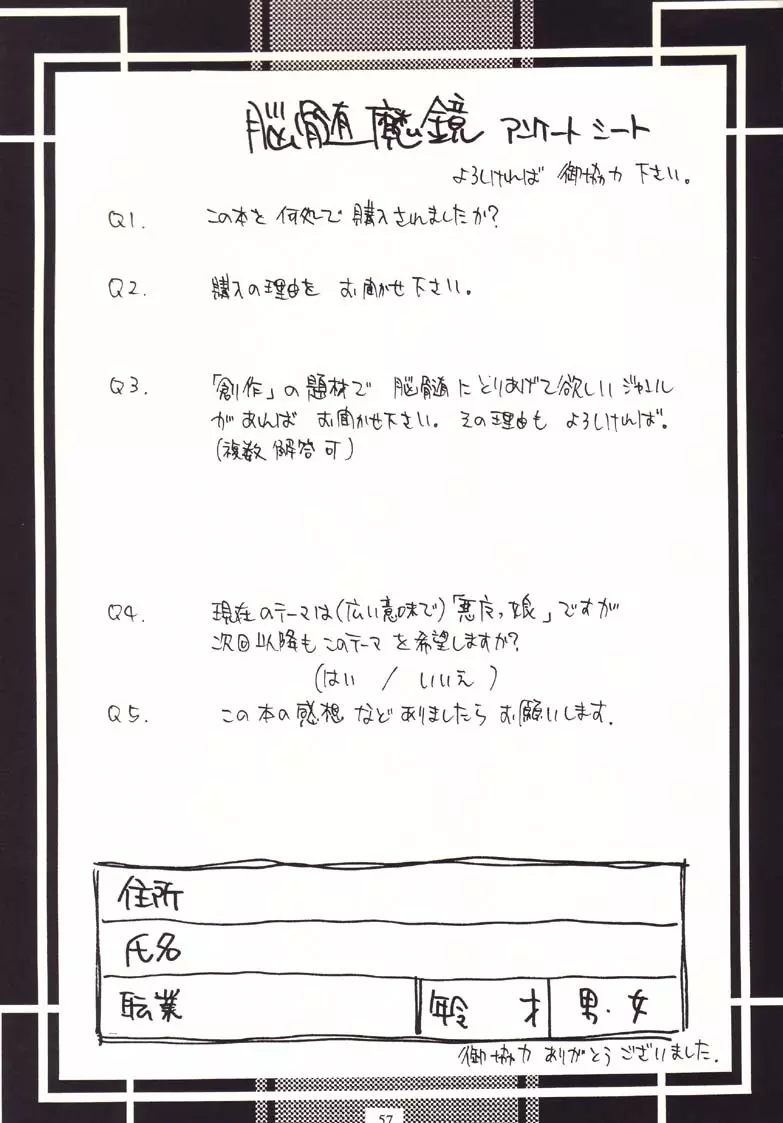 脳髄魔鏡 アンケートシート
よろしければ 御協力 下さい。
Q1. この本を何処で購入されましたか?
Q2. 購入の理由を お聞かせ下さい。
Q3. 「創作」の題材で 脳髄にとりあげて欲しいジャンル
があれば お聞かせ下さい。その理由も よろしければ。
(複数解答可)
Q4. 現在のテーマは(広い意味で)「悪方っ娘」ですが
次回以降もこのテーマを希望しますか?
(はい / いいえ)
Q5. この本の感想などありましたらお願いします.
住所
氏名
転業 年令 才 男・女
御協力ありがとうございました.
57